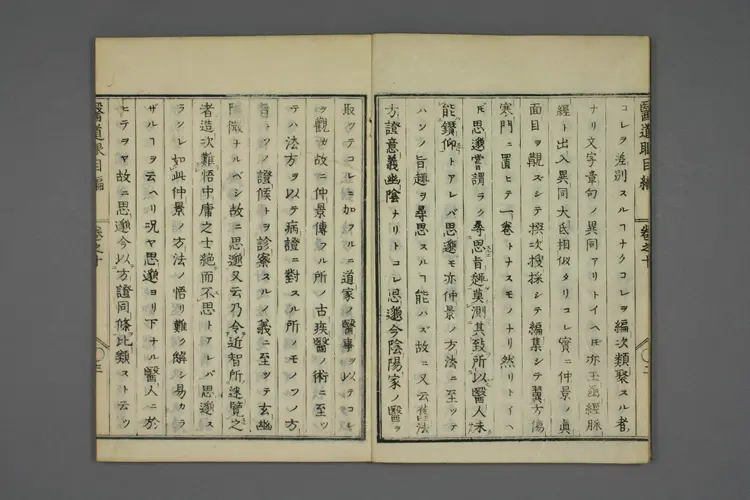 醫道眼目編 卷之十 二
コレヲ差別スルヿナクコレヲ編次類聚スル者
ナリ文字章句ノ異同アリトイヘ𪜈亦玉函經脈
經ト出入異同大氐相似タリコレ實ニ仲景ノ眞
面目ヲ觀ズシテ撰次搜採シテ編集シテ翼方傷
寒門ニ置ヒテ一卷トナスモノナリ然リトイヘ
𪜈思邈嘗謂ラク尋思旨趣莫測其致所以醫人未
能鑽仰トアレバ思邈モ亦仲景ノ方法ニ至ツテ
ハソノ旨趣ヲ尋思スルヿ能ハズ故ニ又云舊法
方證意義幽隱ナリトコレ思邈今陰陽家ノ醫ヲ
取ツテコレニ加フルニ道家ノ醫事ヲ以テコレ
ヲ觀ガ故ニ仲景傳フル所ノ古疾醫ノ術ニ至ツ
テハ法方ヲ以テ病證ニ對スル所ノモノソノ方
旨トソノ證候トヲ診察スルノ義ニ至ツテ玄幽
隱微ナルベシ故ニ思邈又云乃令近智所迷覽之
者造次難悟中庸之士絶而不思トアレバ思邈ス
ラソレ如此仲景ノ方法ノ悟リ難ク解シ易カラ
ザルヿヲ云ヘリ況ヤ思邈ヨリ下ナル醫人ニ於
ヒテヲヤ故ニ思邈今以方證同條比類スト云ツ
醫道眼目編 卷之十 三